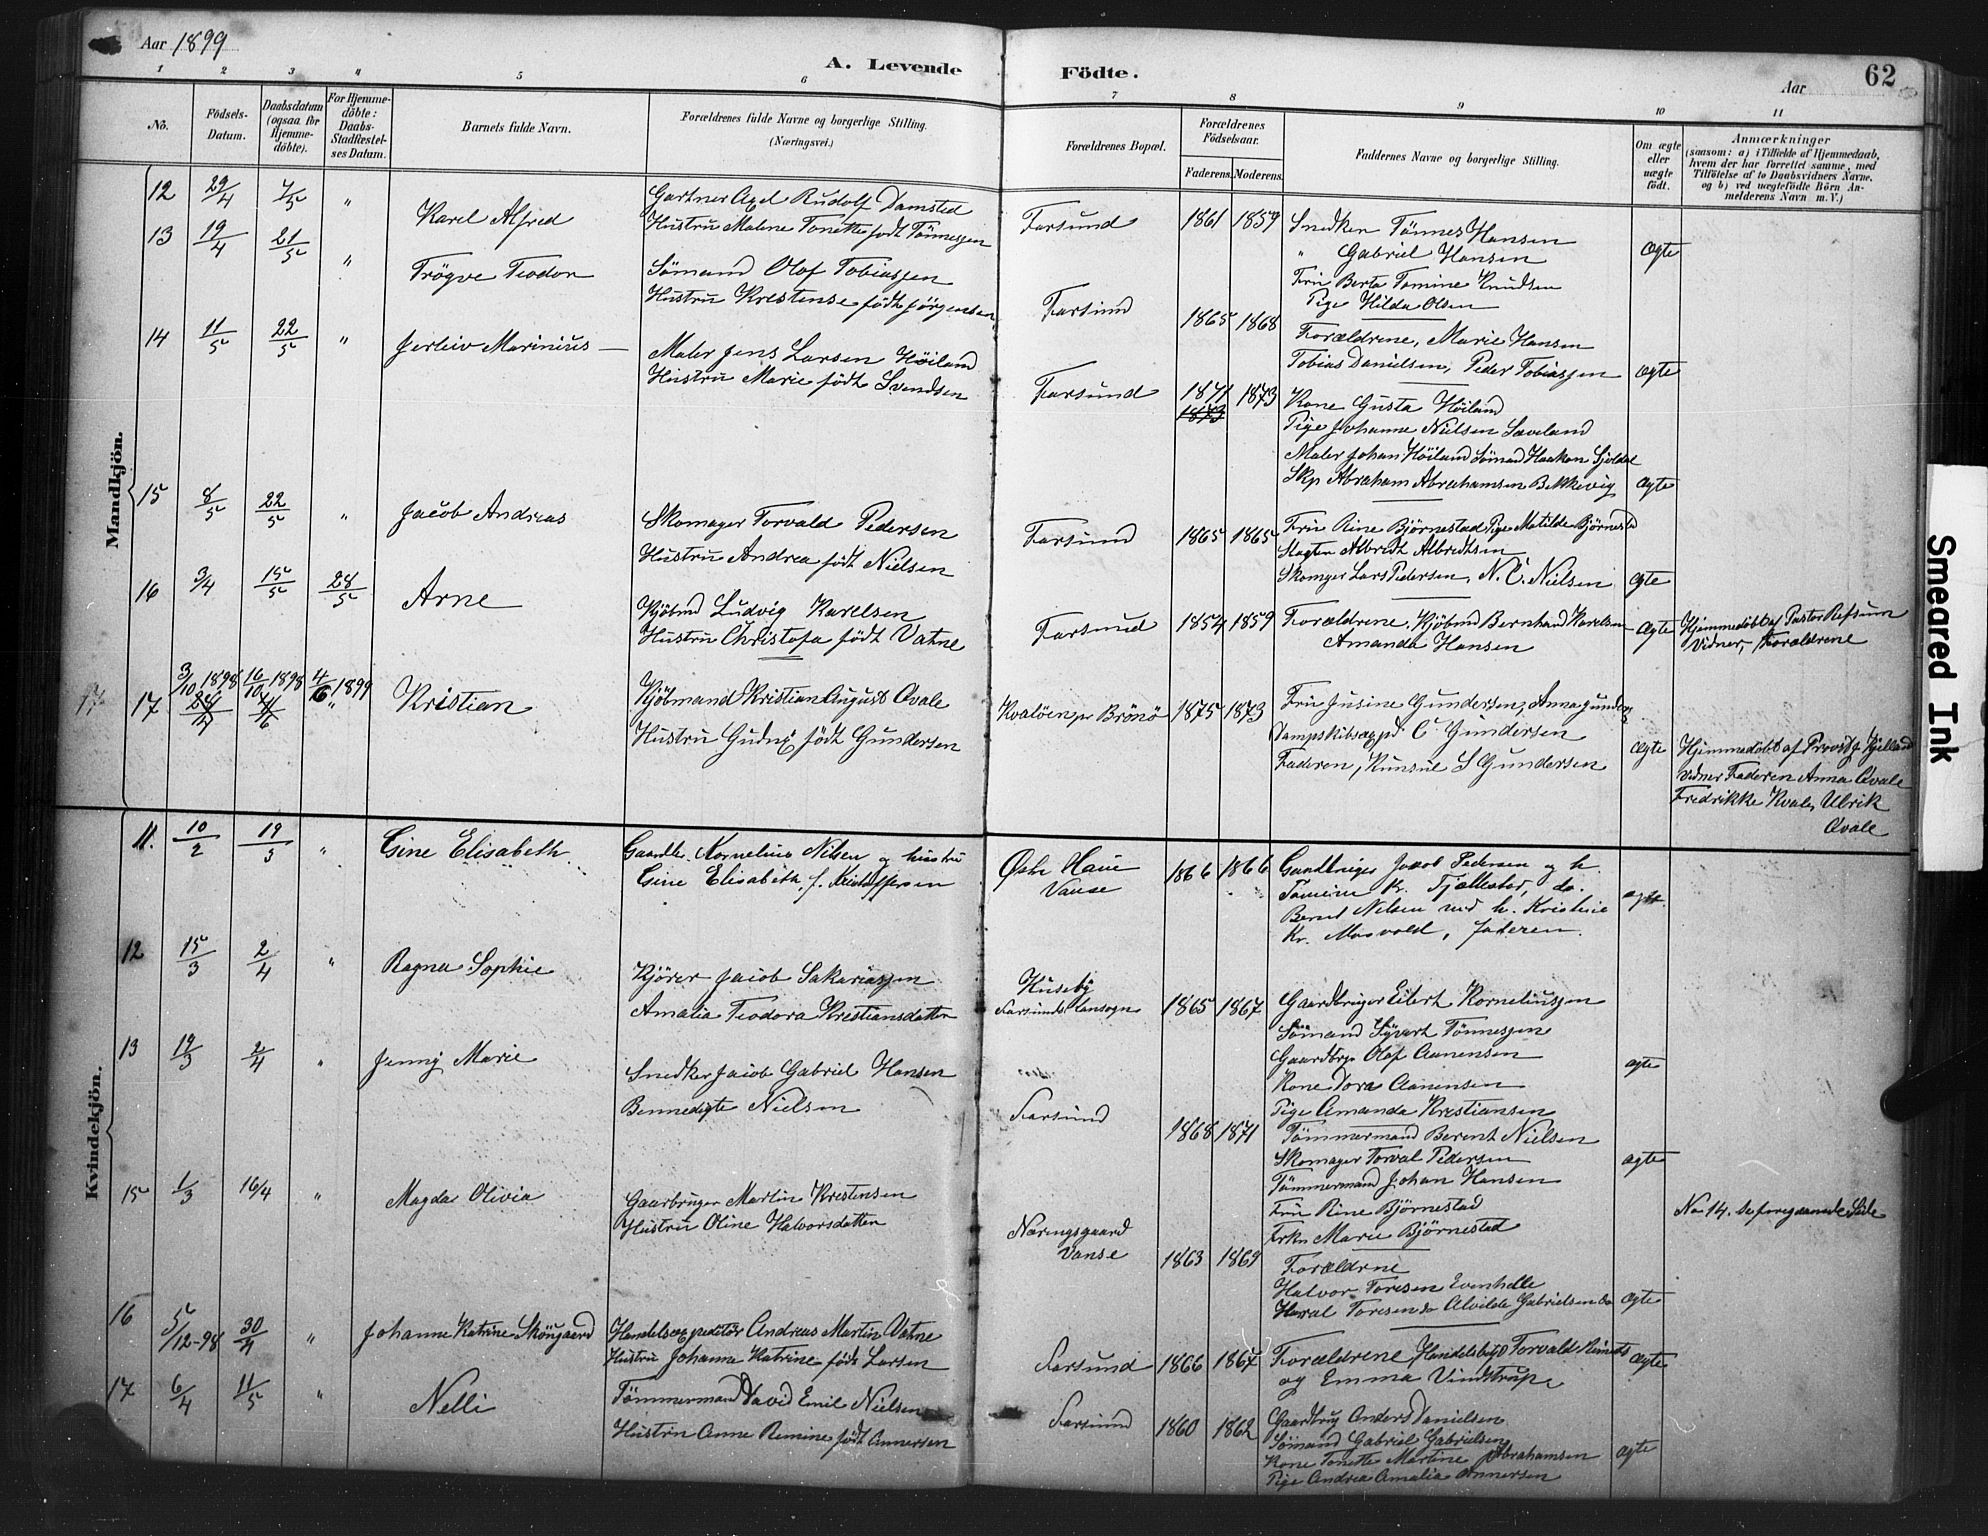 Aar 1899
A. Levende Födte.
Aar
62
1 2 3 4 5 6 7 8 9 10 11
No.
Födsels-Datum.
Daabsdatum (ogsaa for Hjemme-döbte).
For Hjemme-döbte: Daabs-Stadfæstel-ses Datum.
Barnets fulde Navn.
Forældrenes fulde Navne og borgerlige Stilling.
(Næringsvei.)
Forældrenes Bopæl.
Forældrenes Födselsaar.
Faderens. Moderens.
Faddernes Navne og borgerlige Stilling.
Om ægte eller uægte födt.
Anmærkninger
(saasom: a) i Tilfælde af Hjemmedaab,
hvem der har forrettet samme, med
Tilföielse af to Daabsvidners Navne,
og b) ved uægtefödte Börn An-
melderens Navn m.V.)
Mandkjön.
12 29/4 7/5 " Karel Alfred
Gartner Axel Rudolf Damsted
Hustru Malene Tonette født Tønnesen
Farsund 1861 1859
Snedker Tönnes Hansen
" Gabriel Hansen
Fru Berta Tomine Knudsen
Pige Hilda Olsen
Ægte
13 19/4 21/5 " Trögve Teodor
Sömand Olaf Tobiassen
Hustru Krestense født Jörgensen
Farsund 1865 1868
Forældrene, Marie Hansen
Tobias Danielsen, Peder Tobiassen
ægte
14 11/5 22/5 " Jerleiv Marinius
Maler Jens Larsen Höiland
Hustru Marie födt Svendsen
Farsund 1871 1873
1873
Kone Gusta Höiland
Pige Johanne Nielsen Laveland
Maler Johan Höiland Sömand Haakon
Skp Abraham Abrahamsen Bekkevig
ægte
15 8/5 22/5 " Jacob Andreas
Skomager Torvald Pedersen
Hustru Andrea født Nielsen
Farsund 1865 1865
Fru Rine Björnestad Pige Matilde Björnestd
Slagter Albreth Albrethsen
Skomger Lars Pedersen, N. C. Nielsen
ægte
16 3/4 15/5 28/5 Arne
Kjöbmd Ludvig Karelsen
Hustru Christofa født Vatne
Farsund 1854 1859
Forældrene, Kjöbmd Bernhard Karelsen
Amanda Hansen
ægte
Hjemmedöbt af Pastor Refsum
Vidner, Forældrene
17 3/10 1898 16/10 1898 4/6 1899 Kristian
Kjöbmand Kristian August Qvale
Hustru Gudny født Gundersen
Kvalöen pr Brönö 1875 1873
Fru Jusine Gundersen, Anna Gunders
Dampskibsexpd C Gundersen
Faderen, Kunsul S Gundersen
ægte
Hjemmedöbt af Provst J Kjelland
Vidner Faderen Anna Qvale
Fredrikke Kvale, Ulrik
Qvale
Kvindekjön.
11. 10/2 19/3 " Gine Elisabeth.
Gaardbr. Kornelius Nilsen og hustru
Gine Elisabeth f. Kristoffersen
Östre Haue
Vanse
1866 1866
Gaardbruger Jakob Pedersen og h.
Tomine Kr. Tjællestad, do.
Bernt Nilsen med h. Kristine
Kr. Mosvold, faderen.
ægte.
12 15/3 2/4 " Ragna Sophie
Kjörer Jacob Sakariassen
Amalia Teodora Kristiansdatter
Huseby
Farsunds Lansogn
1865 1867
Gaardbruger Eilert Korneliussen
Sömand Syvert Tönnessen
Gaardbrgr Olaf Aanensen
Kone Dora Aanensen
Pige Amanda Kristiansen
ægte
13 19/3 2/4 " Jenny Marie
Snedker Jacob Gabriel Hansen
Bennedigte Nielsen
Farsund 1868 1871
Tömmermand Berent Nielsen
Skomager Torval Pedersen
Tömmermand Johan Hansen
Fru Rine Björnestad
Frkn Marie Björnestad
ægte
15 1/3 16/4 " Magda Olivia
Gaarbruger Martin Kristensen
Hustru Oline Halvorsdatter
Næringsgaard
Vanse
1863 1869
Forældrene
Halvor Toresen Evenhelle
Haral Toresen do Alvilde Gabrielsen do
ægte
No 14. se foregaaende Side
16 5/12-98 30/4 " Johanne Katrine Sköngaard
Handelsexpeditör Andreas Martin Vatne
Hustru Johanne Katrine født Larsen
Farsund 1866 1867
Forældrene, Handelsbtj. Torvald
og Emma Vindstrup
ægte
17 6/4 11/5 " Nelli
Tömmermand David Emil Nielsen
Hustru Anne Remine født Annersen
Farsund 1860 1862
Gaardbrug Anders Danielsen
Sömand Gabriel Gabrielsen
Kone Tonette Martine Abrahamsen
Pige Andrea Amalia Annersen
ægte
Smeared Ink